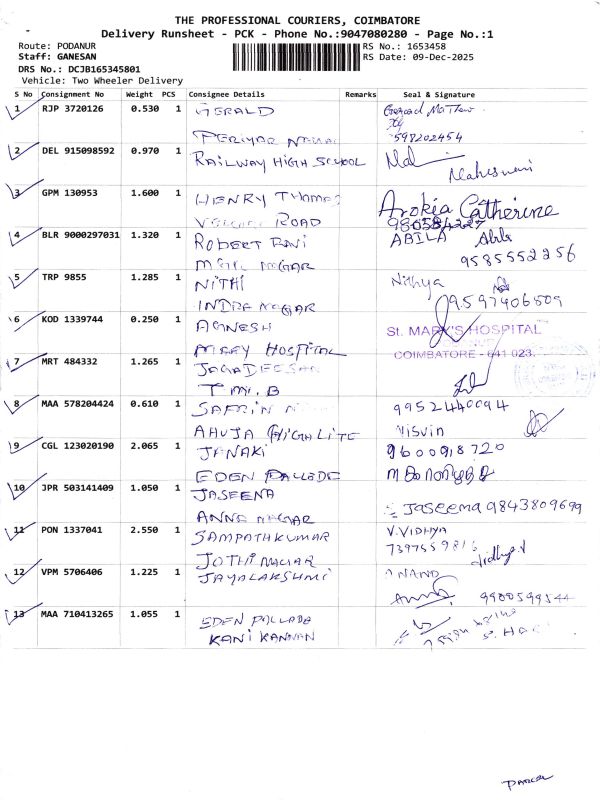 THE PROFESSIONAL COURIERS, COIMBATORE
Delivery Runsheet - PCK - Phone No.:9047080280 - Page No.:1
Route: PODANUR RS No.: 1653458
Staff: GANESAN RS Date: 09-Dec-2025
DRS No.: DCJB165345801
Vehicle: Two Wheeler Delivery
S No Consignment No Weight PCS Consignee Details Remarks Seal & Signature
1 RJP 3720126 0.530 1 GERALD
PERIYAR 598202454
2 DEL 915098592 0.970 1 RAILWAY HIGH SCHOOL
Maheswari
3 GPM 130953 1.600 1 HENRY THOMAS Arokia Catherine
ROAD
4 BLR 9000297031 1.320 1 ROBERT RAVI ABILA
NAGAR 9585552256
5 TRP 9855 1.285 1 NITHI Nithya
INDRA NAGAR 9597406509
6 KOD 1339744 0.250 1 AGNESH St. MARY'S HOSPITAL
MARY HOSPITAL COIMBATORE - 641 023.
7 MRT 484332 1.265 1 JAGADEESAN
T M. B
8 MAA 578204424 0.610 1 SAFRIN 9952440094
AHUJA HIGHLITE Visvin
9 CGL 123020190 2.065 1 JANAKI 9600918720
EDEN PALLADE
10 JPR 503141409 1.050 1 JASEENA Jaseema 9843809699
ANNA NAGAR
11 PON 1337041 2.550 1 SAMPATHKUMAR V.VIDHYA
JOTHI NAGAR Vidhya.V
12 VPM 5706406 1.225 1 JAYALAKSHMI ANAND
13 MAA 710413265 1.055 1 EDEN PALLADE
KANI KANNAN
PARCEL